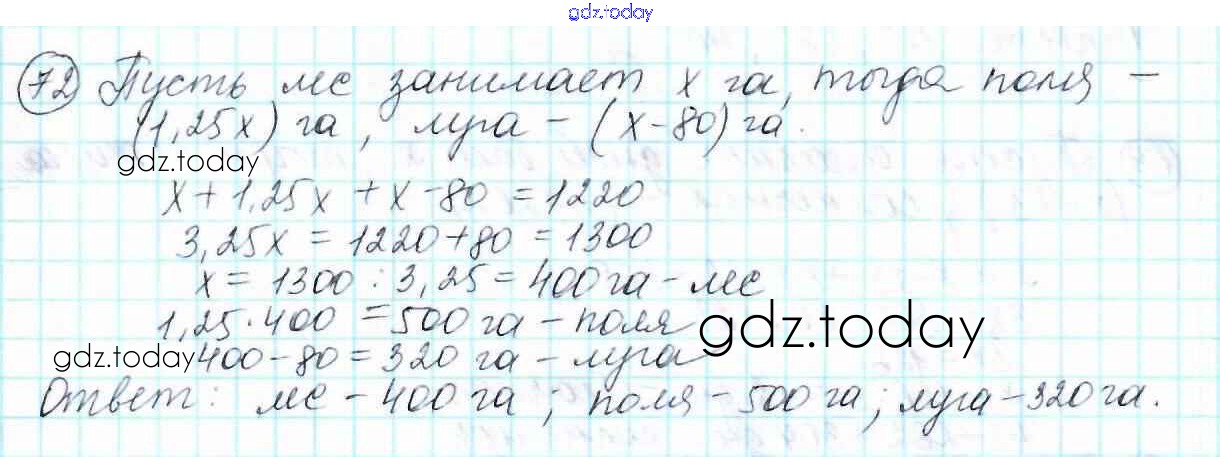 gdz.today
72 Пусть лес занимает x га, тогда поля –
(1,25x) га, луга – (x-80) га.
gdz.today
x + 1,25x + x - 80 = 1220
3,25x = 1220+80 = 1300
x = 1300 : 3,25 = 400 га - лес
1,25 · 400 = 500 га - поля
gdz.today
gdz.today
400 - 80 = 320 га - луга
Ответ: лес - 400 га; поля - 500 га; луга - 320 га.